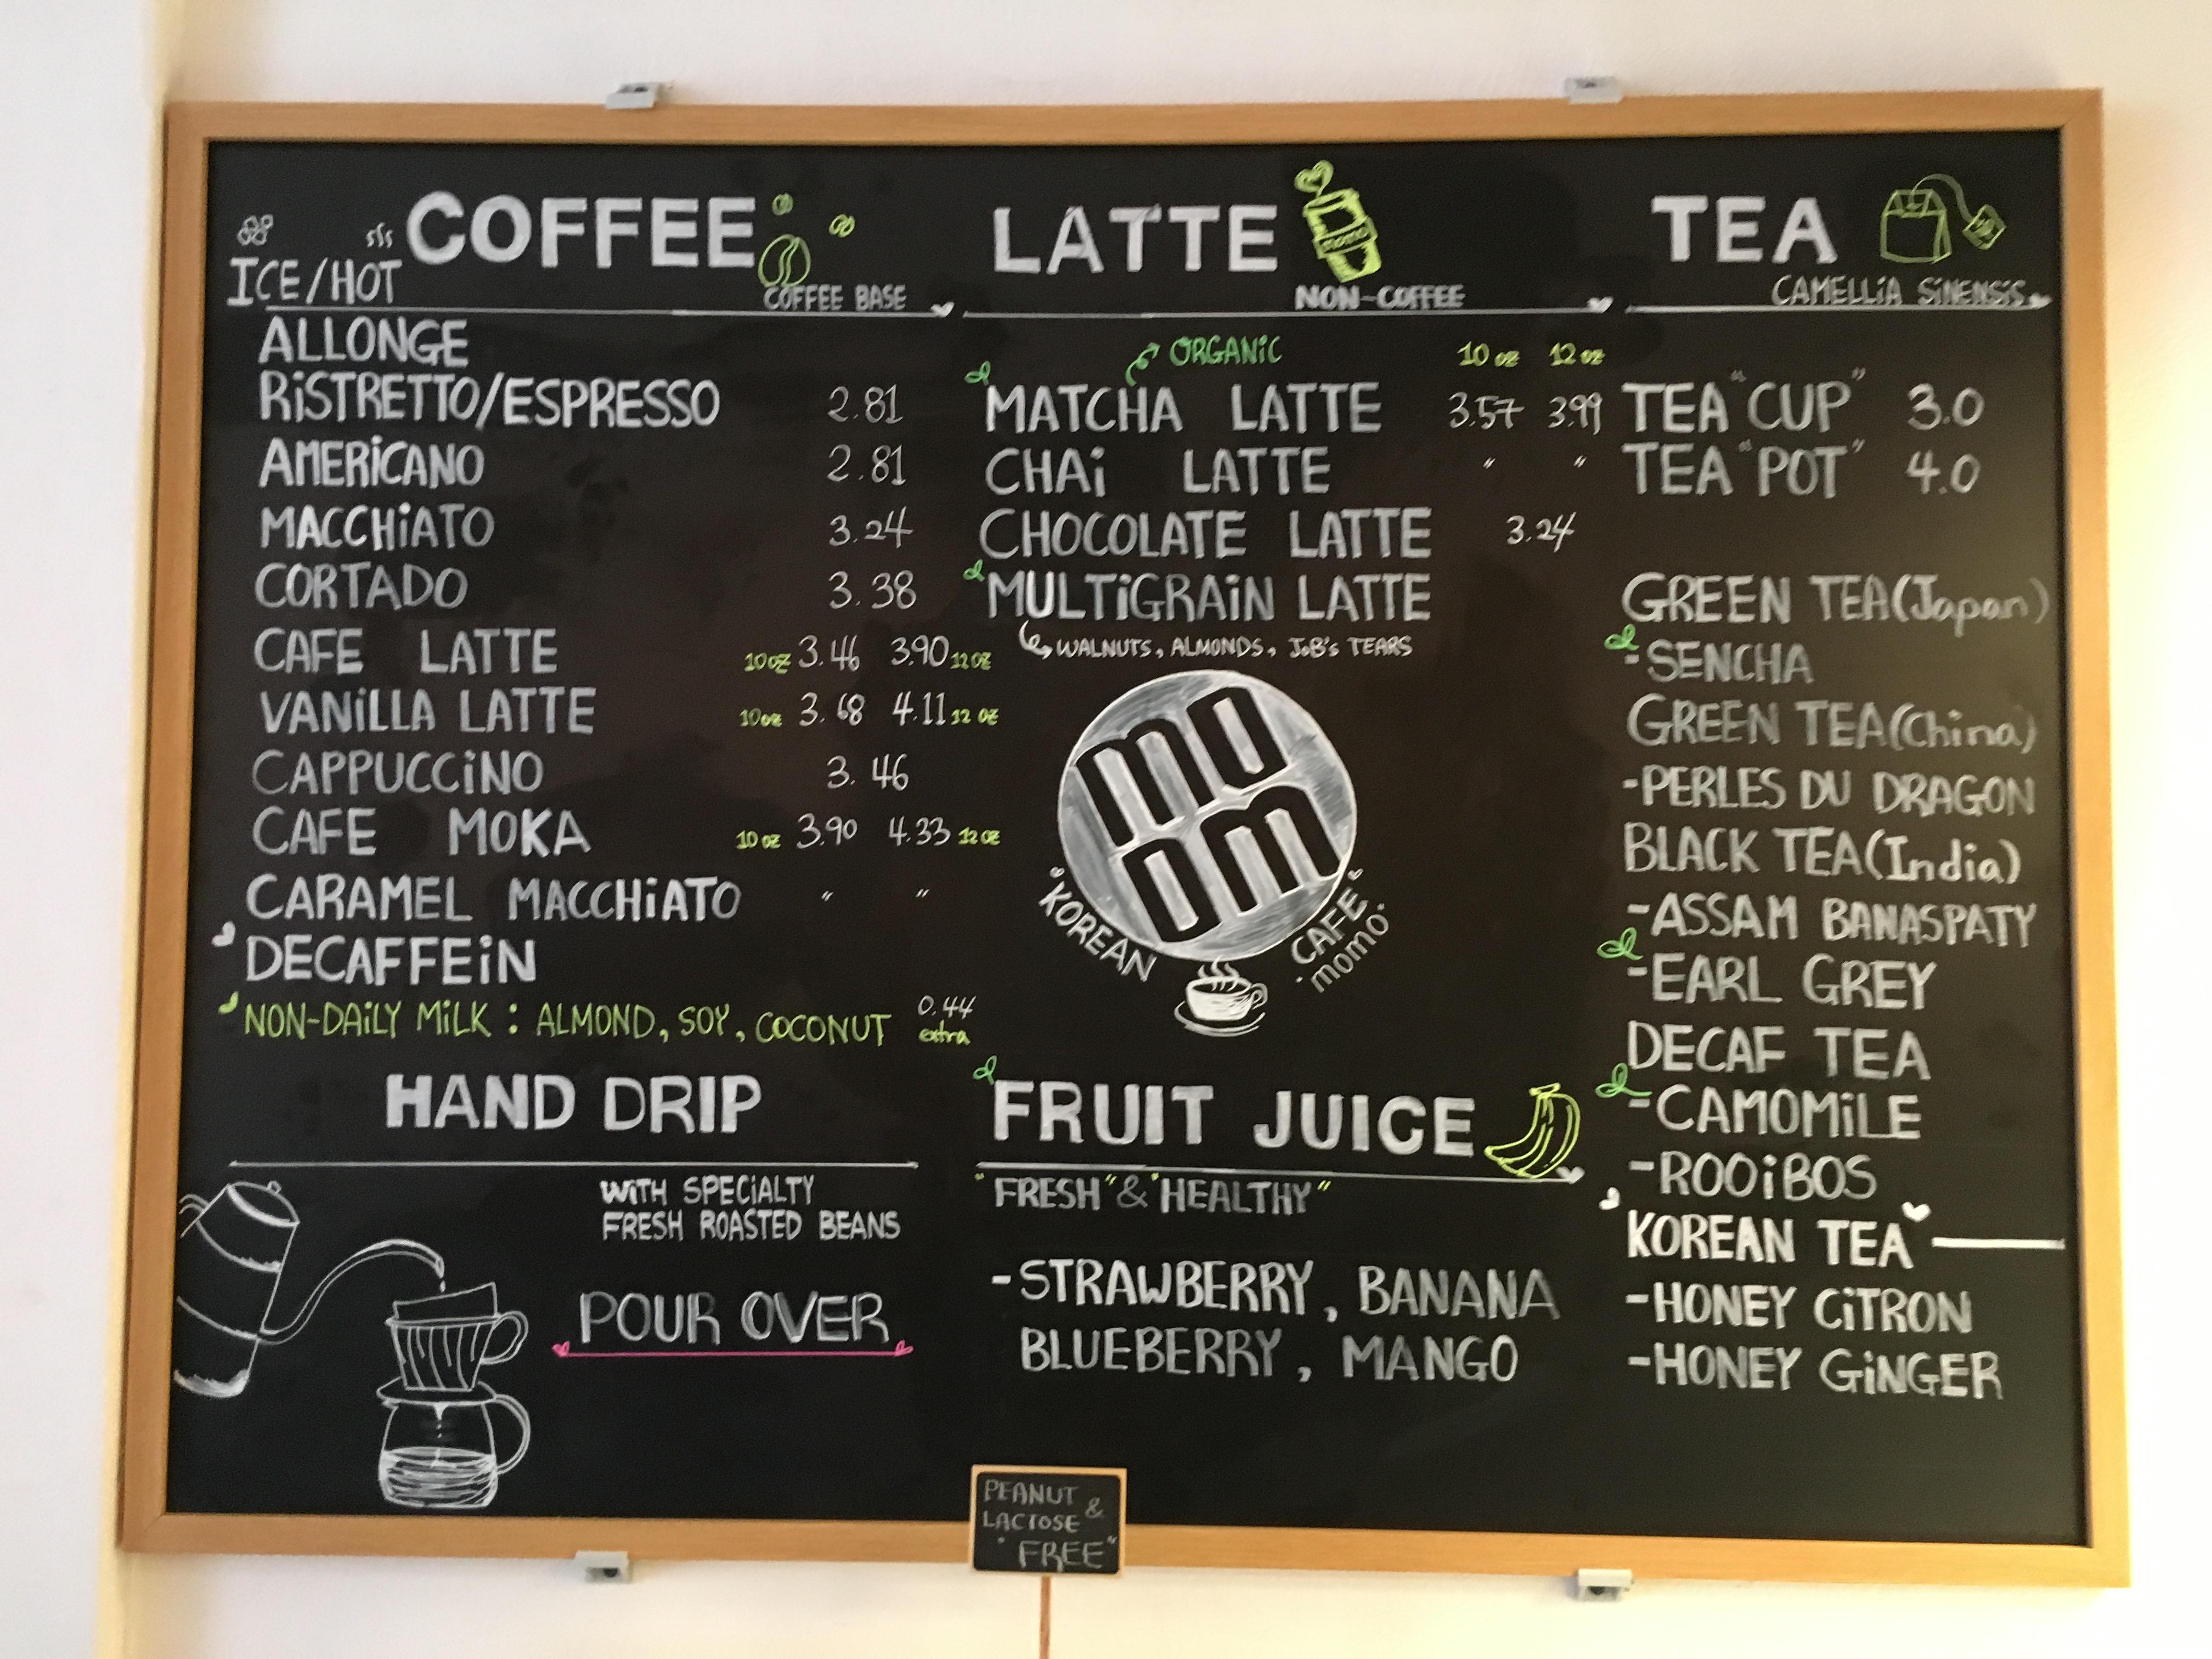 ICE/HOT COFFEE
COFFEE BASE
ALLONGE
RiSTRETTO/ESPRESSO 2.81
AMERiCANO 2.81
MACCHiATO 3.24
CORTADO 3.38
CAFE LATTE 10oz 3.46 3.90 12oz
VANiLLA LATTE 10oz 3.68 4.11 12 oz
CAPPUCCiNO 3.46
CAFE MOKA 10 oz 3.90 4.33 12 oz
CARAMEL MACCHiATO " "
DECAFFEiN
NON-DAiLY MiLK : ALMOND, SOY, COCONUT 0.44 extra
HAND DRIP
WiTH SPECiALTY
FRESH ROASTED BEANS
POUR OVER
LATTE
NON-COFFEE
ORGANiC 10 oz 12 oz
MATCHA LATTE 3.57 3.99
CHAi LATTE " "
CHOCOLATE LATTE 3.24
MULTiGRAiN LATTE
WALNUTS, ALMONDS, JoB's TEARS
momo
"KOREAN CAFE"
·momo·
FRUIT JUICE
"FRESH" & "HEALTHY"
-STRAWBERRY, BANANA
BLUEBERRY, MANGO
TEA
CAMELLiA SiNENSiS
TEA "CUP" 3.0
TEA "POT" 4.0
GREEN TEA(Japan)
-SENCHA
GREEN TEA(China)
-PERLES DU DRAGON
BLACK TEA(India)
-ASSAM BANASPATY
-EARL GREY
DECAF TEA
-CAMOMiLE
-ROOiBOS
KOREAN TEA
-HONEY CiTRON
-HONEY GiNGER
PEANUT &
LACTOSE
"FREE"